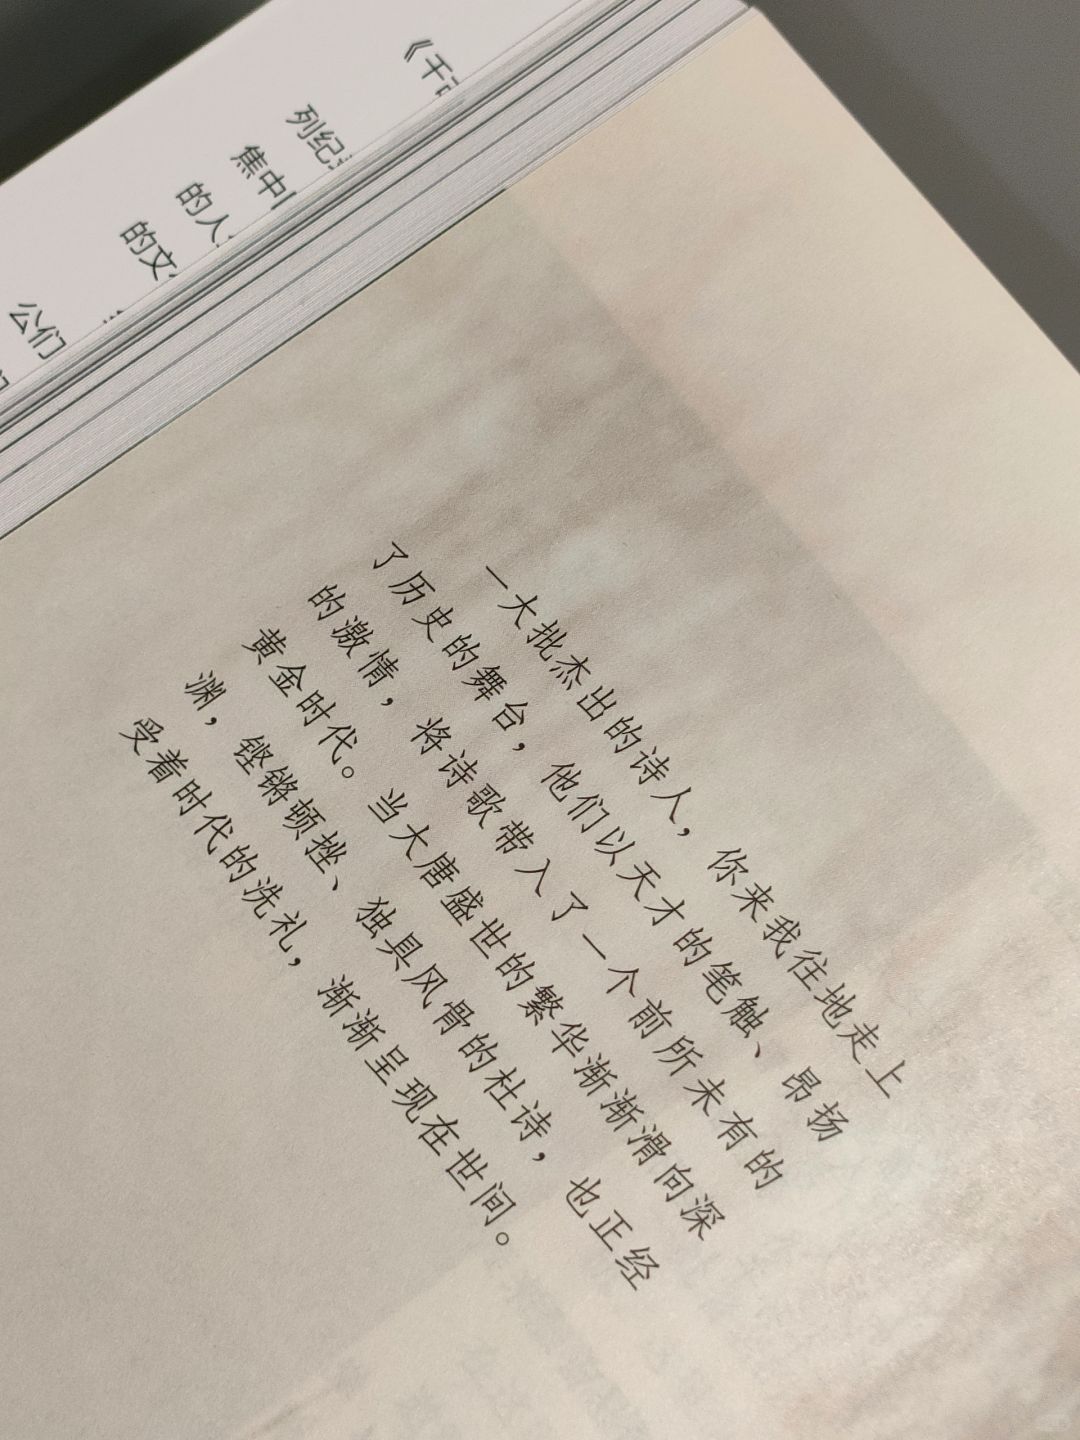 《千
列纪
焦中
的人
的文
公们
一大批杰出的诗人，你来我往地走上
了历史的舞台，他们以天才的笔触、昂扬
的激情，将诗歌带入了一个前所未有的
黄金时代。当大唐盛世的繁华渐渐滑向深
渊，铿锵顿挫、独具风骨的杜诗，也正经
受着时代的洗礼，渐渐呈现在世间。